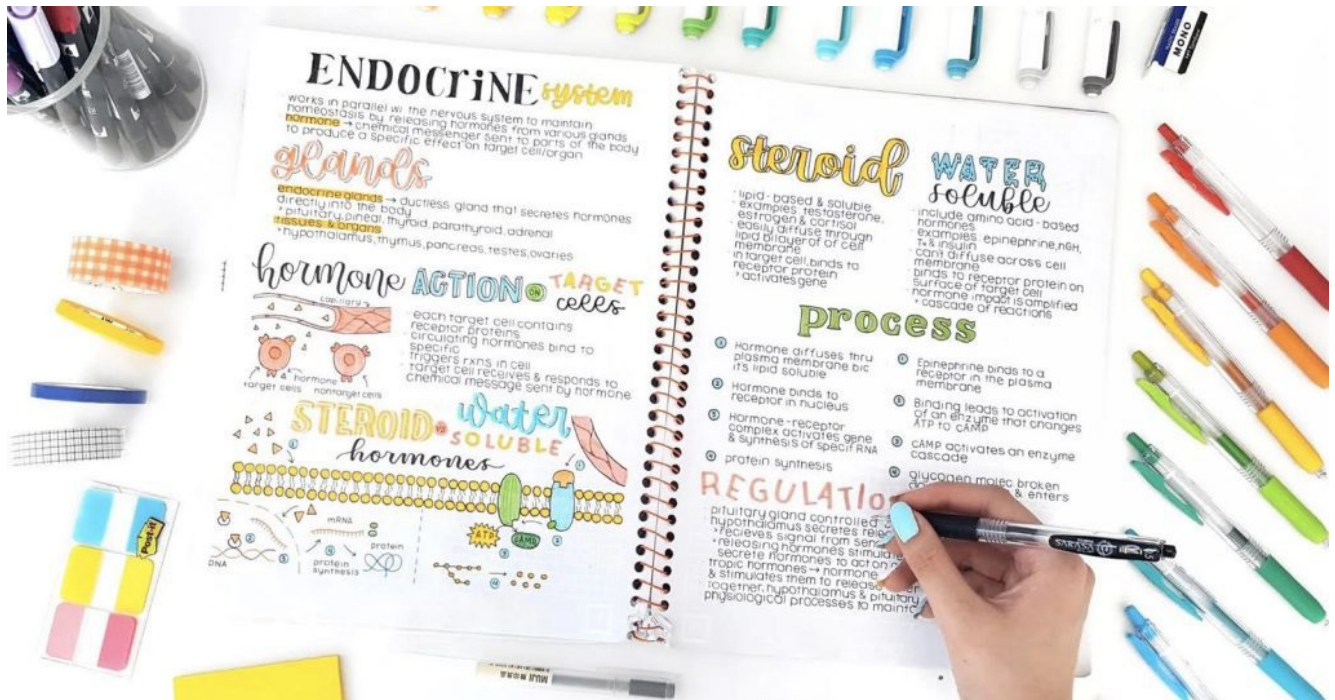 ENDOCRiNE system
works in parallel w/ the nervous system to maintain
homeostasis by releasing hormones from various glands
hormone → chemical messenger sent to parts of the body
to produce a specific effect on target cell/organ
glands
endocrine glands → ductless gland that secretes hormones
directly into the body
pituitary, pineal, thyroid, parathyroid, adrenal
tissues & organs
hypothalamus, thymus, pancreas, testes, ovaries
hormone ACTION ON TARGET
cells
capillary
target cells
hormone
nontarget cells
each target cell contains
receptor proteins
circulating hormones bind to
specific
triggers rxns in cell
target cell receives & responds to
chemical message sent by hormone
STEROID vs water
SOLUBLE
hormones
1
1
DNA
2
3
mRNA
4
protein
synthesis
protein
ATP
cAMP
3
2
4
steroid
· lipid-based & soluble
· examples testosterone,
estrogen & cortisol
· easily diffuse through
lipid bilayer of cell
membrane
· in target cell, binds to
receptor protein
activates gene
WATER
soluble
· include amino acid-based
hormones
· examples epinephrine, hGH,
T4 & insulin
· can't diffuse across cell
membrane
· binds to receptor protein on
surface of target cell
· hormone impact is amplified
cascade of reactions
process
1 Hormone diffuses thru
plasma membrane b/c
it's lipid soluble
2 Hormone binds to
receptor in nucleus
3 Hormone-receptor
complex activates gene
& synthesis of specif RNA
4 protein synthesis
1 Epinephrine binds to a
receptor in the plasma
membrane
2 Binding leads to activation
of an enzyme that changes
ATP to cAMP
3 cAMP activates an enzyme
cascade
4 glycogen molec broken
& enters
REGULATIO
pituitary gland controlled
hypothalamus secretes
recieves signal from
releasing hormones
secrete hormones to action
tropic hormones → hormone
& stimulates them to release
together, hypothalamus & pituitary
physiological processes to
Post-it
MONO
SARASA
MUJI 無印良品